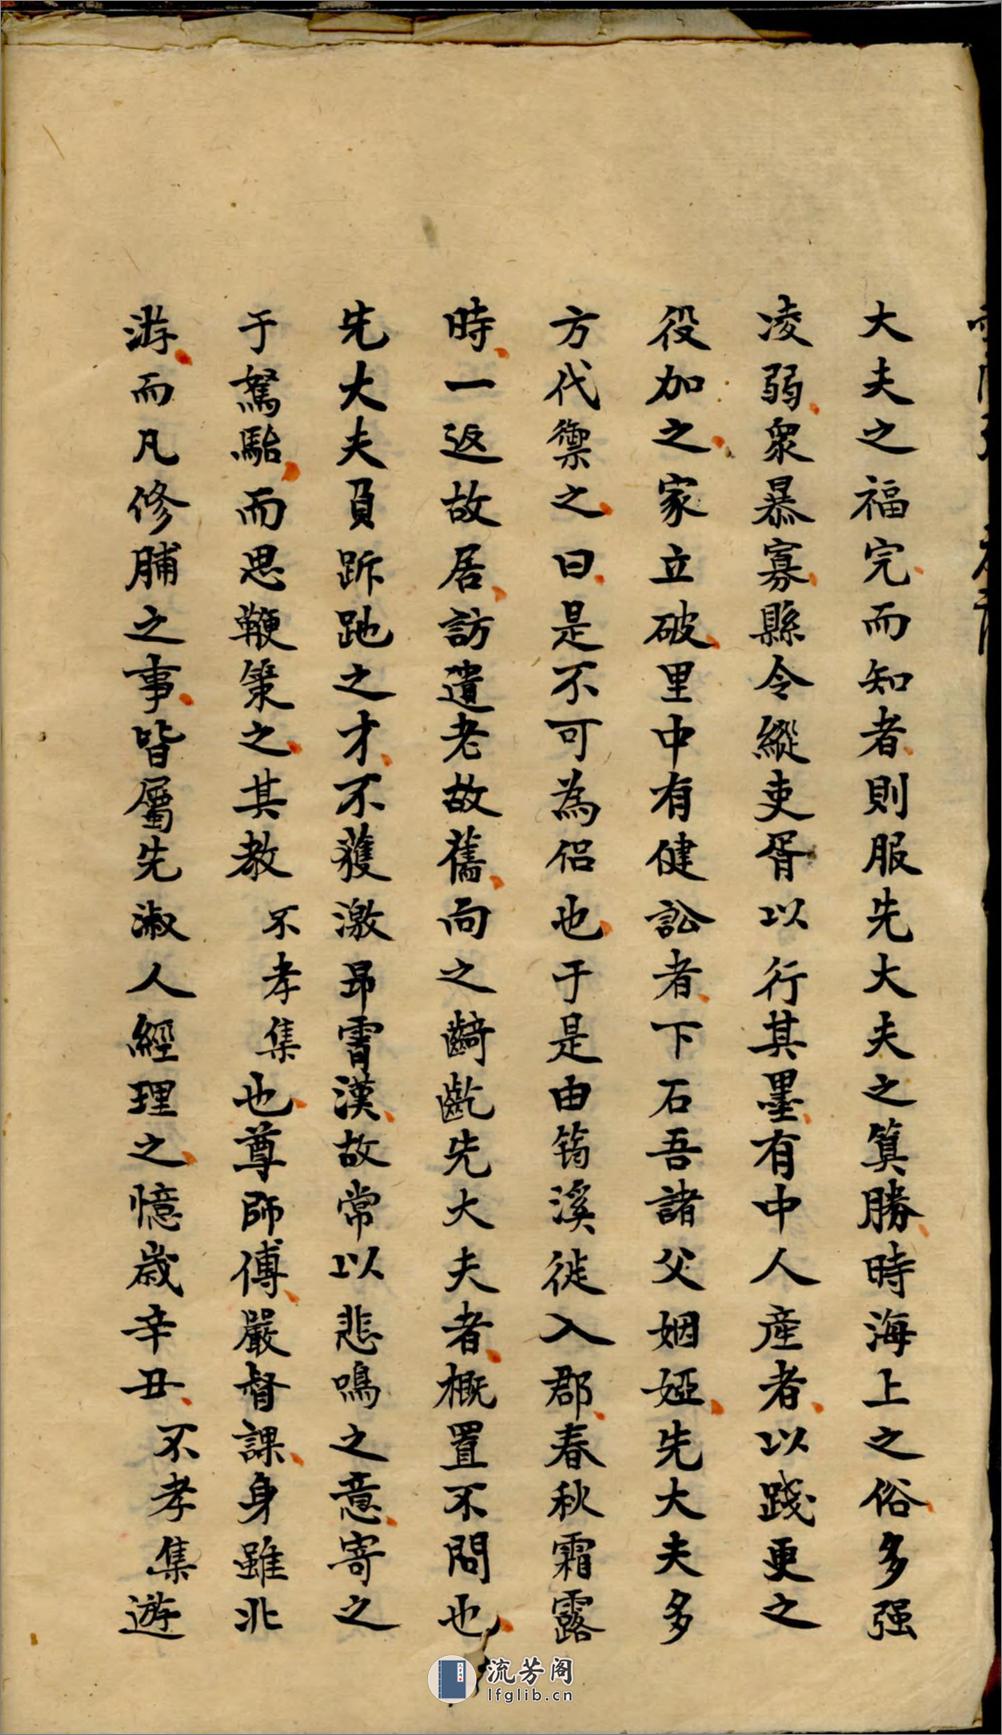 大夫之福完而知者則服先大夫之筭勝時海上之俗多强
凌弱衆暴寡縣令縱吏胥以行其墨有中人產者以踐更之
役加之家立破里中有健訟者下石吾諸父姻婭先大夫多
方代禦之曰是不可為侶也于是由筠溪徙入郡春秋霜露
時一返故居訪遺老故舊向之齮齕先大夫者概置不問也
先大夫負跅跎之才不獲激昂霄漢故常以悲鳴之意寄之
于駑駘而思鞭策之其教不孝集也尊師傅嚴督課身雖北
游而凡修脯之事皆屬先淑人經理之憶歲辛丑不孝集遊
流芳阁
lfglib.cn